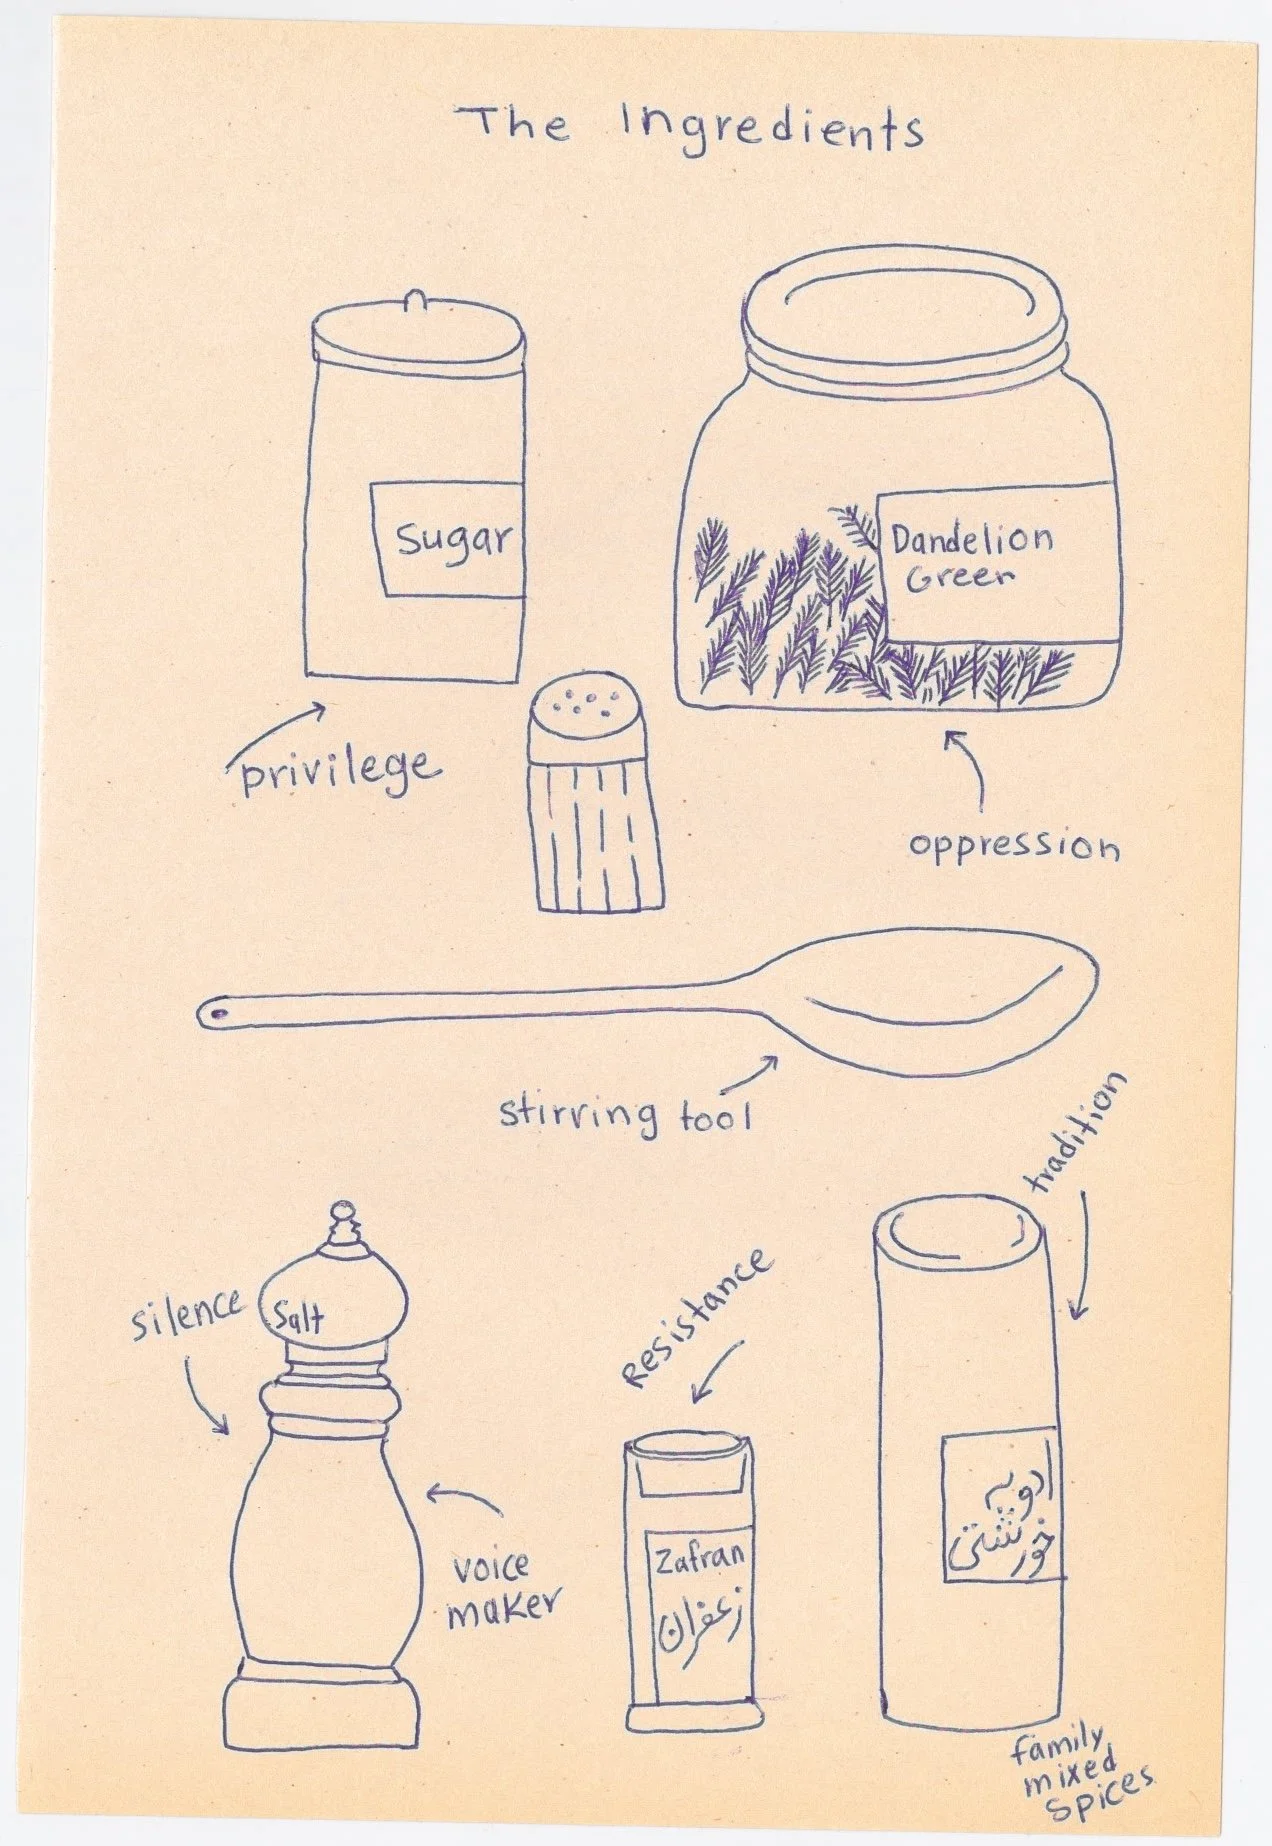 The Ingredients
Sugar
Dandelion
Green
privilege
oppression
stirring tool
tradition
silence
Salt
Resistance
voice
maker
Zafran
زعفران
ادویه
خورشتی
family
mixed
spices